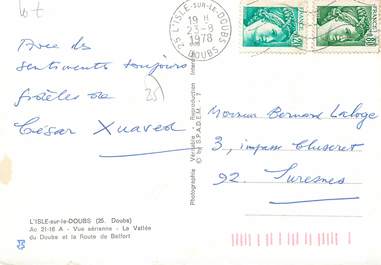 25 L'ISLE-SUR-LE-DOUBS
19 H
23-8
1978
DOUBS
Avec les
sentiments toujours
fidèles de
César Xuaved
25
Monsieur Bernard Laloge
3, impasse Cluseret
92. Suresnes
Photographie Véritable - Reproduction
© by S.P.A.D.E.M. - 7
L'ISLE-sur-le-DOUBS (25. Doubs)
Ac 21-16 A - Vue aérienne - La Vallée
du Doubs et la Route de Belfort